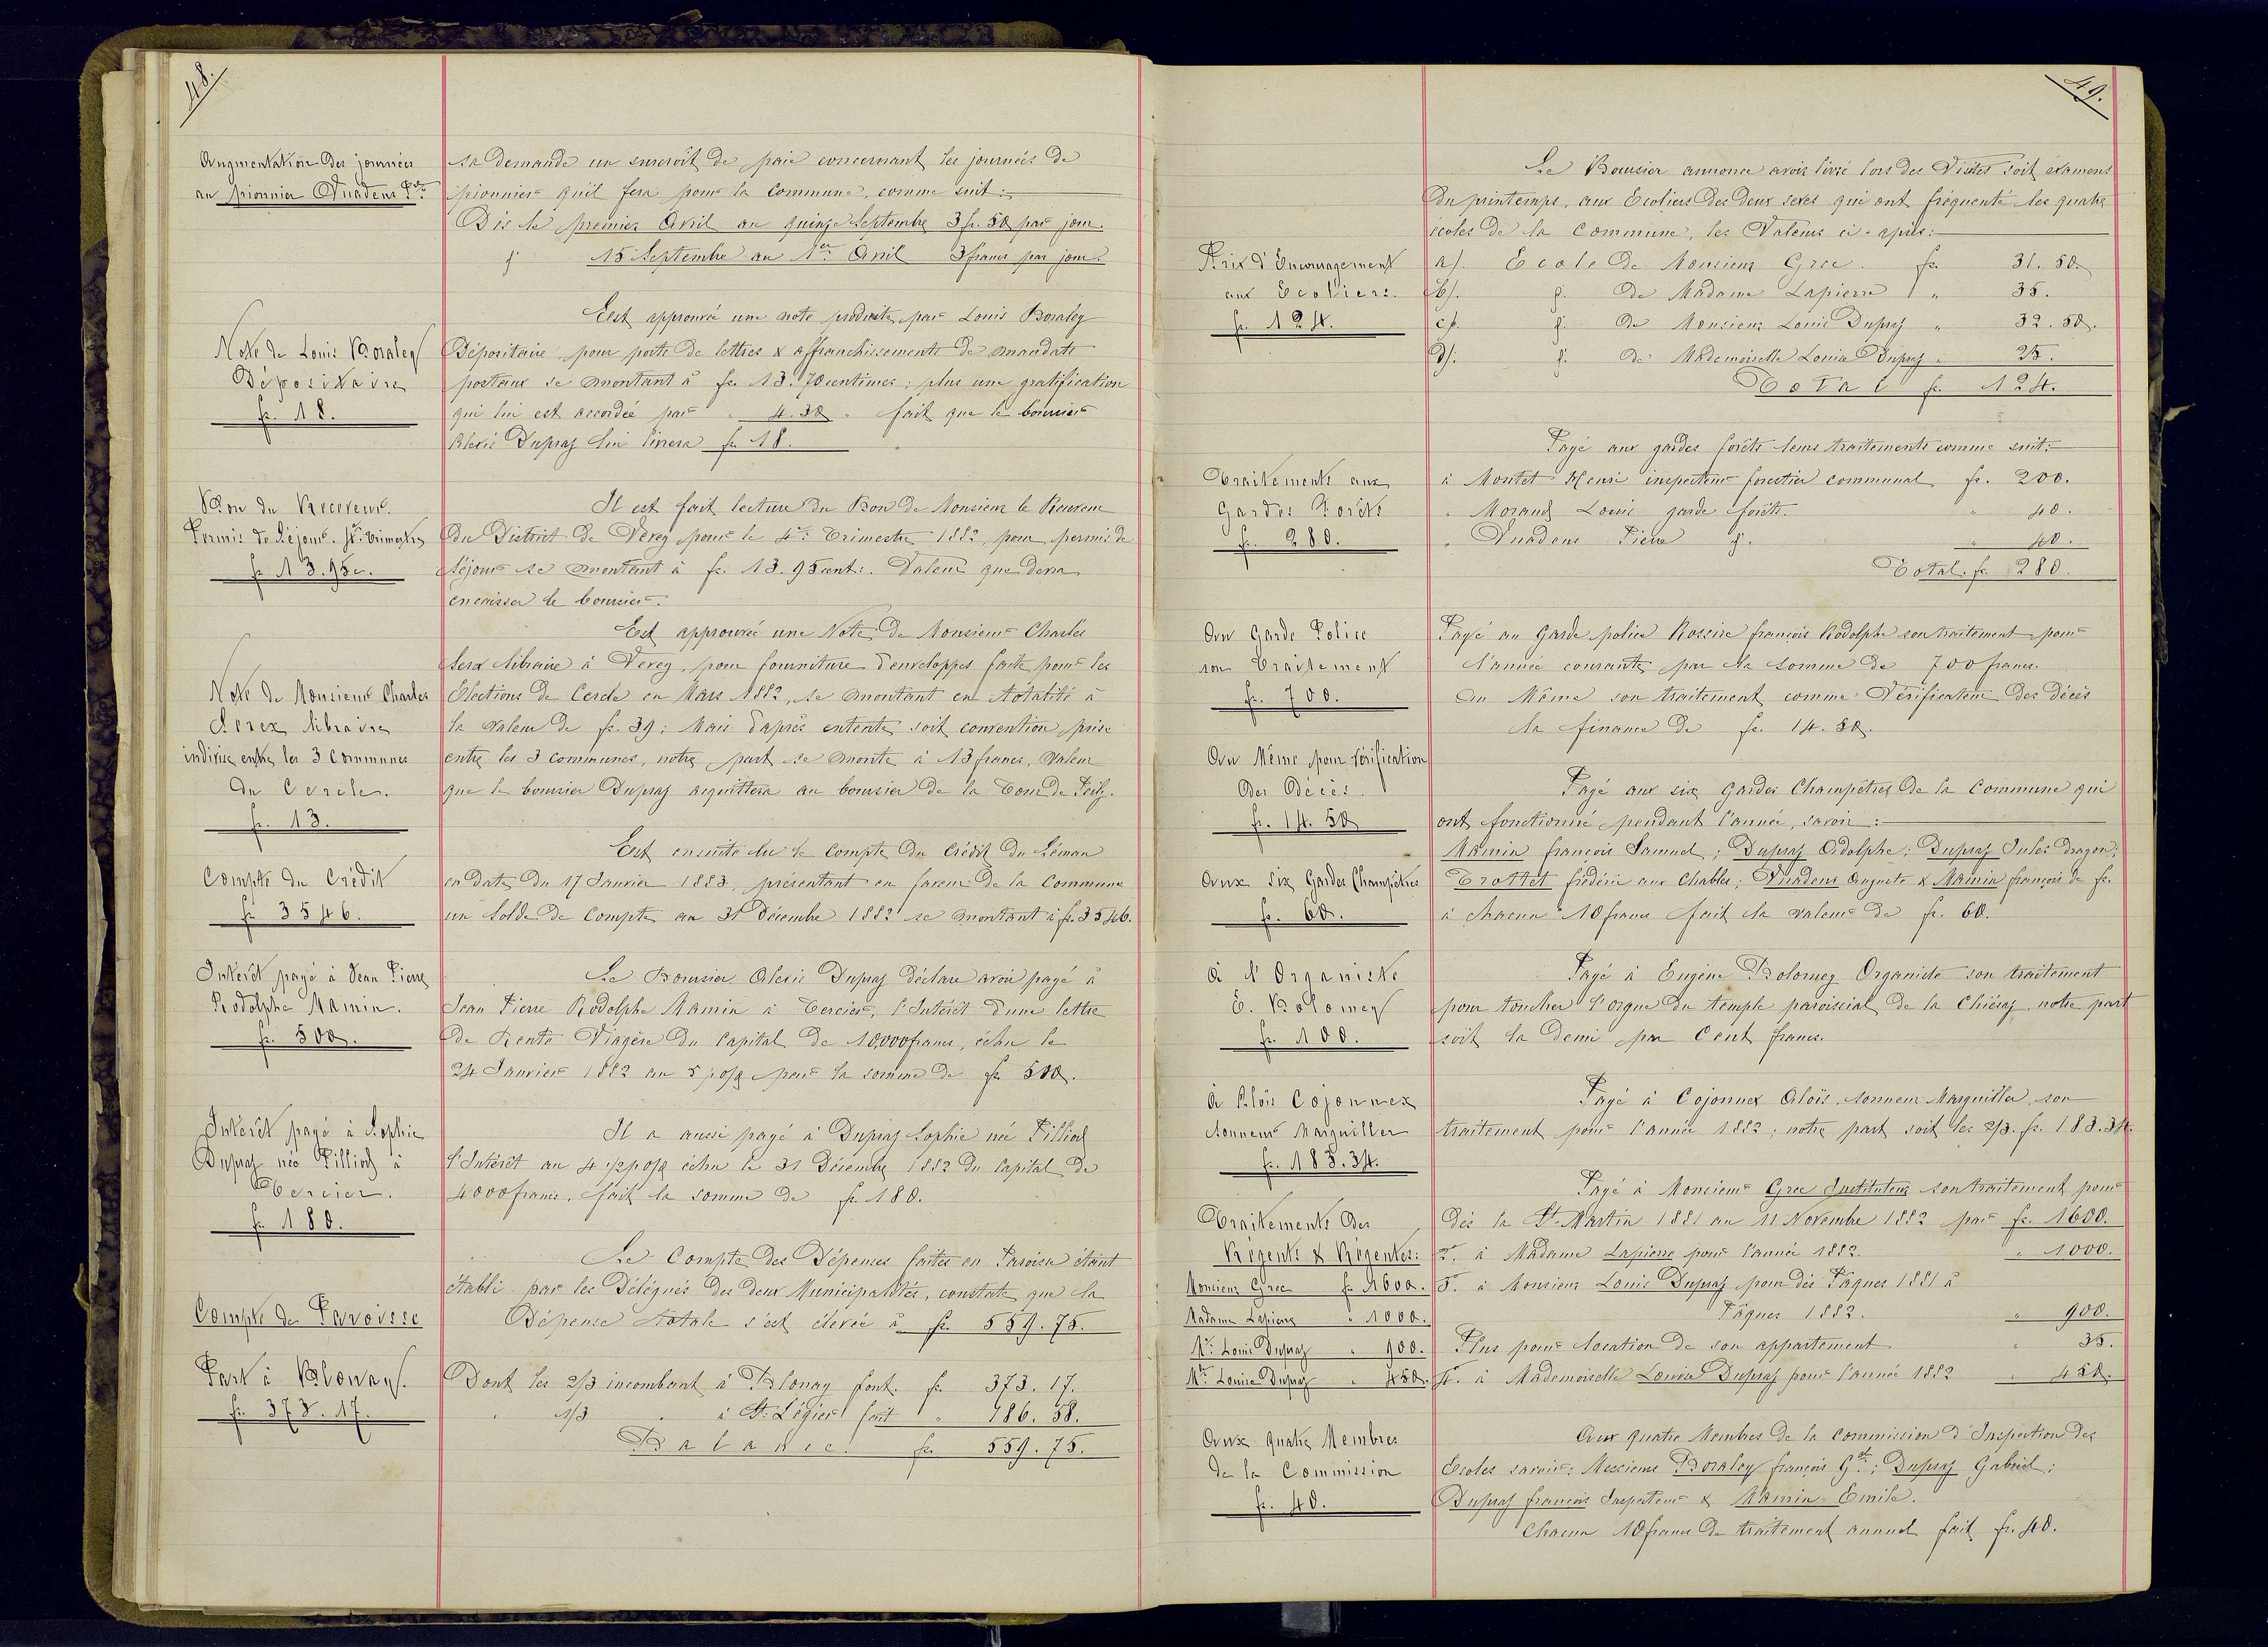 48.
Augmentation des journées
au pionnier Anadens Pre.
sa demande un surcroît de paie concernant les journées de
pionnier qu'il fera pour la Commune, comme suit :
Dès le premier Avril au quinze Septembre 3 fr. 50 par jour.
d° 15 Septembre au 1er Avril 3 francs par jour.
Note de Louis Boraley
Dépositaire
fr. 18.
Est approuvée une note produite par Louis Boraley
Dépositaire, pour ports de lettres & affranchissements de mandats
postaux se montant à fr. 13.70 centimes ; plus une gratification
qui lui est accordée par " 4.30 " fait que le boursier
Alexis Dupraz lui livrera fr. 18.
Bon du Receveur.
Permis de Séjour. 4e Trimestre
fr. 13.95c.
Il est fait lecture du Bon de Monsieur le Receveur
du District de Vevey pour le 4e Trimestre 1882, pour permis de
séjour se montant à fr. 13.95 cent:. Valeur que devra
encaisser le boursier.
Note de Monsieur Charles
Serex libraire
indivise entre les 3 Communes
du Cercle.
fr. 13.
Est approuvée une Note de Monsieur Charles
Serex libraire à Vevey, pour fourniture d'enveloppes faite pour les
Elections de Cercle en Mars 1882, se montant en totalité à
la valeur de fr. 39 ; Mais d'après entente soit convention prise
entre les 3 communes, notre part se monte à 13 francs, valeur
que le boursier Dupraz acquittera au boursier de la Tour de Peilz.
Compte du Crédit
fr. 3546.
Est ensuite lu le Compte du Crédit du Léman
en date du 17 Janvier 1883, présentant en faveur de la Commune
un Solde de Compte au 31 Décembre 1882 se montant à fr. 3546.
Intérêt payé à Jean Pierre
Rodolphe Mamin.
fr. 500.
Le Boursier Alexis Dupraz déclare avoir payé à
Jean Pierre Rodolphe Mamin à Tercier, l'Intérêt d'une lettre
de Rente Viagère du Capital de 10,000 francs, échu le
24 Janvier 1882 au 5 p% par la somme de fr. 500.
Intérêt payé à Sophie
Dupraz née Pilliod à
Tercier.
fr. 180.
Il a aussi payé à Dupraz Sophie née Pilliod
l'Intérêt au 4 1/2 p% échu le 31 Décembre 1882 du Capital de
4000 francs, fait la somme de fr. 180.
Compte de Paroisse
Le Compte des Dépenses faites en Paroisse étant
établi par les Délégués des deux Municipalités, constate que la
Dépense totale s'est élevée à fr. 559.75.
Part à Blonay.
fr. 373.17.
Dont les 2/3 incombant à Blonay font. fr. 373.17.
" 1/3 " à St. Légier font " 186.58.
Balance. fr. 559.75.
49.
Le Boursier annonce avoir livré lors des Visites soit examens
du printemps, aux Ecoliers des deux sexes qui ont fréquenté les quatre
écoles de la Commune, les Valeurs ci-après :
Prix d'Encouragement
aux Ecoliers.
fr. 124.
a/. Ecole de Monsieur Grec. fr. 31.50.
b/. d° de Madame Lapierre " 35.
c/. d° de Monsieur Louis Dupraz " 32.50.
d/. d° de Mademoiselle Louise Dupraz " 25.
Total fr. 124.
Traitements aux
Gardes Forêts
fr. 280.
Payé aux gardes forêts leurs traitements comme suit :
à Montet Henri inspecteur forestier communal fr. 200.
" Morand Louis garde forêts. " 40.
" Anadens Pierre d°. " 40.
Total. fr. 280.
Au Garde Police
son Traitement
fr. 700.
Payé au Garde police Rossire françois Rodolphe son traitement pour
l'année courante par la somme de 700 francs.
Au Même pour Vérification
des Décès.
fr. 14.50
Au Même son traitement comme Vérificateur des décès
la finance de fr. 14.50.
Aux Six Gardes Champêtres
fr. 60.
Payé aux six gardes Champêtres de la Commune qui
ont fonctionné pendant l'année, savoir :
Mamin françois Samuel ; Dupraz Adolphe ; Dupraz Jules dragon ;
Trottet frédéric aux Chables ; Anadens Auguste & Mamin françois de fr.
à chacun 10 francs fait la valeur de fr. 60.
A l'Organiste
E. Bolomey
fr. 100.
Payé à Eugène Bolomey Organiste son traitement
pour toucher l'orgue du temple paroissial de la Chiésaz, notre part
soit la demi par Cent francs.
A Aloïs Cojonnex
Sonneur Marguiller
fr. 183.34.
Payé à Cojonnex Aloïs, sonneur Marguiller, son
traitement pour l'année 1882 ; notre part soit les 2/3. fr. 183.34.
Traitements des
Régents & Régentes :
Monsieur Grec fr. 1600.
Madame Lapierre " 1000.
Mr. Louis Dupraz " 900.
Mlle. Louise Dupraz " 450.
Payé à Monsieur Grec Instituteur son traitement pour
dès la St. Martin 1881 au 11 Novembre 1882 par fr. 1600.
2°. à Madame Lapierre pour l'année 1882. " 1000.
3°. à Monsieur Louis Dupraz pour dès Pâques 1881 à
Pâques 1882. " 900.
Plus pour location de son appartement " 35.
4°. à Mademoiselle Louise Dupraz pour l'année 1882 " 450.
Aux quatre Membres
de la Commission
fr. 40.
Aux quatre Membres de la Commission d'Inspection des
Ecoles savoir : Messieurs Boraley françois Gel. ; Dupraz Gabriel ;
Dupraz françois Inspecteur & Mamin Emile.
Chacun 10 francs de traitement annuel fait fr. 40.